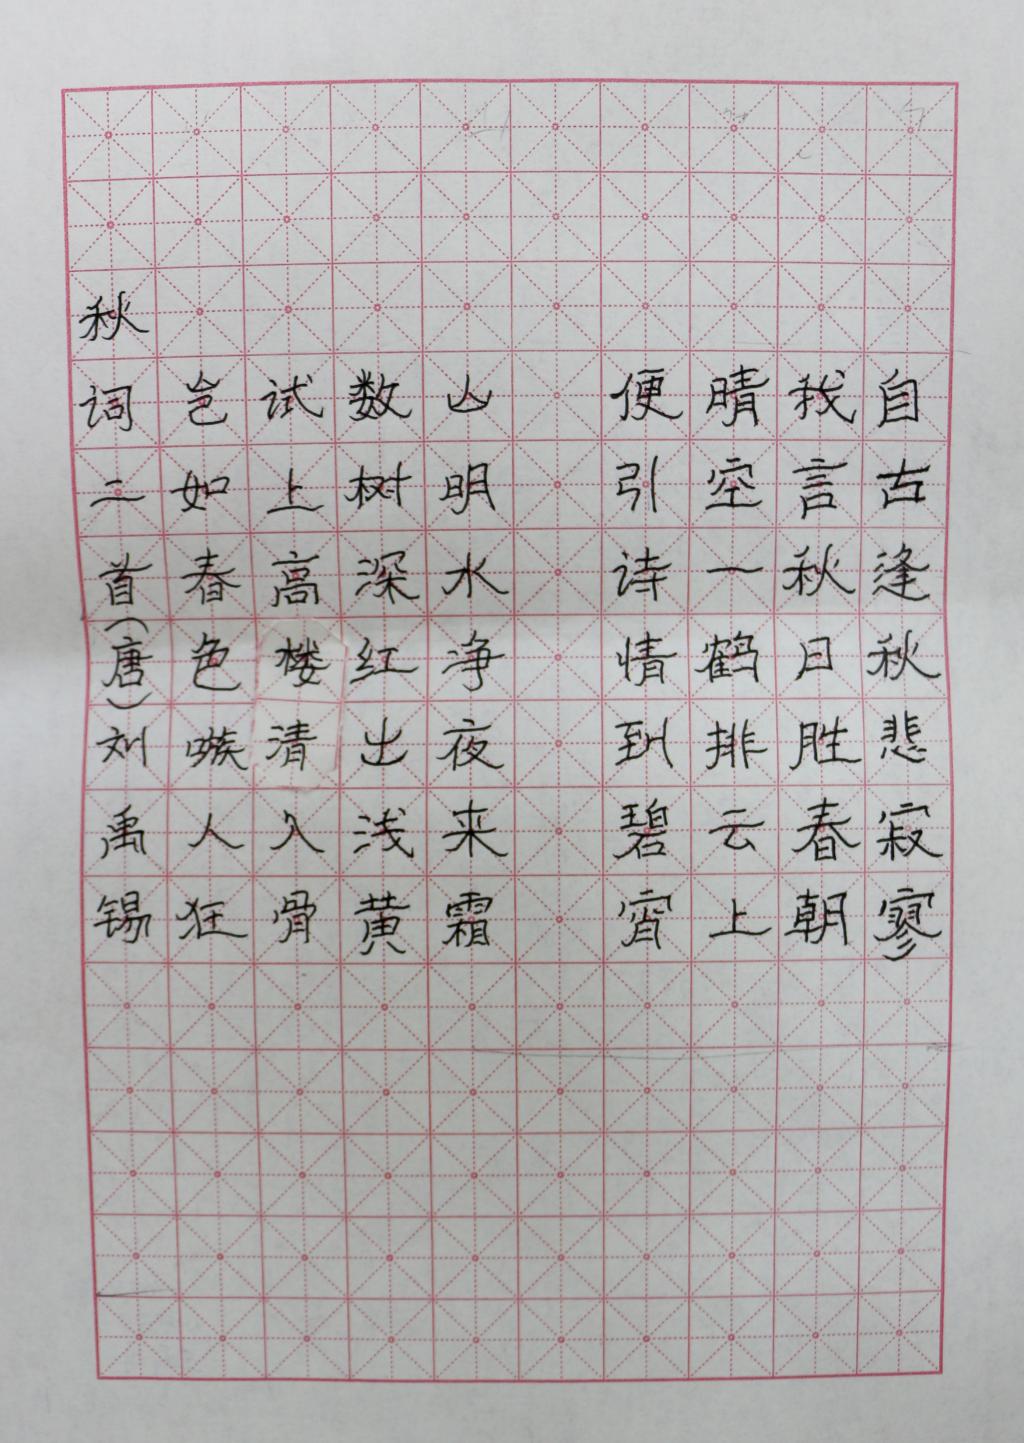 自古逢秋悲寂寥
我言秋日胜春朝
晴空一鹤排云上
便引诗情到碧宵
山明水净夜来霜
数树深红出浅黄
试上高楼清入骨
岂如春色嗾人狂
秋词二首(唐)刘禹锡